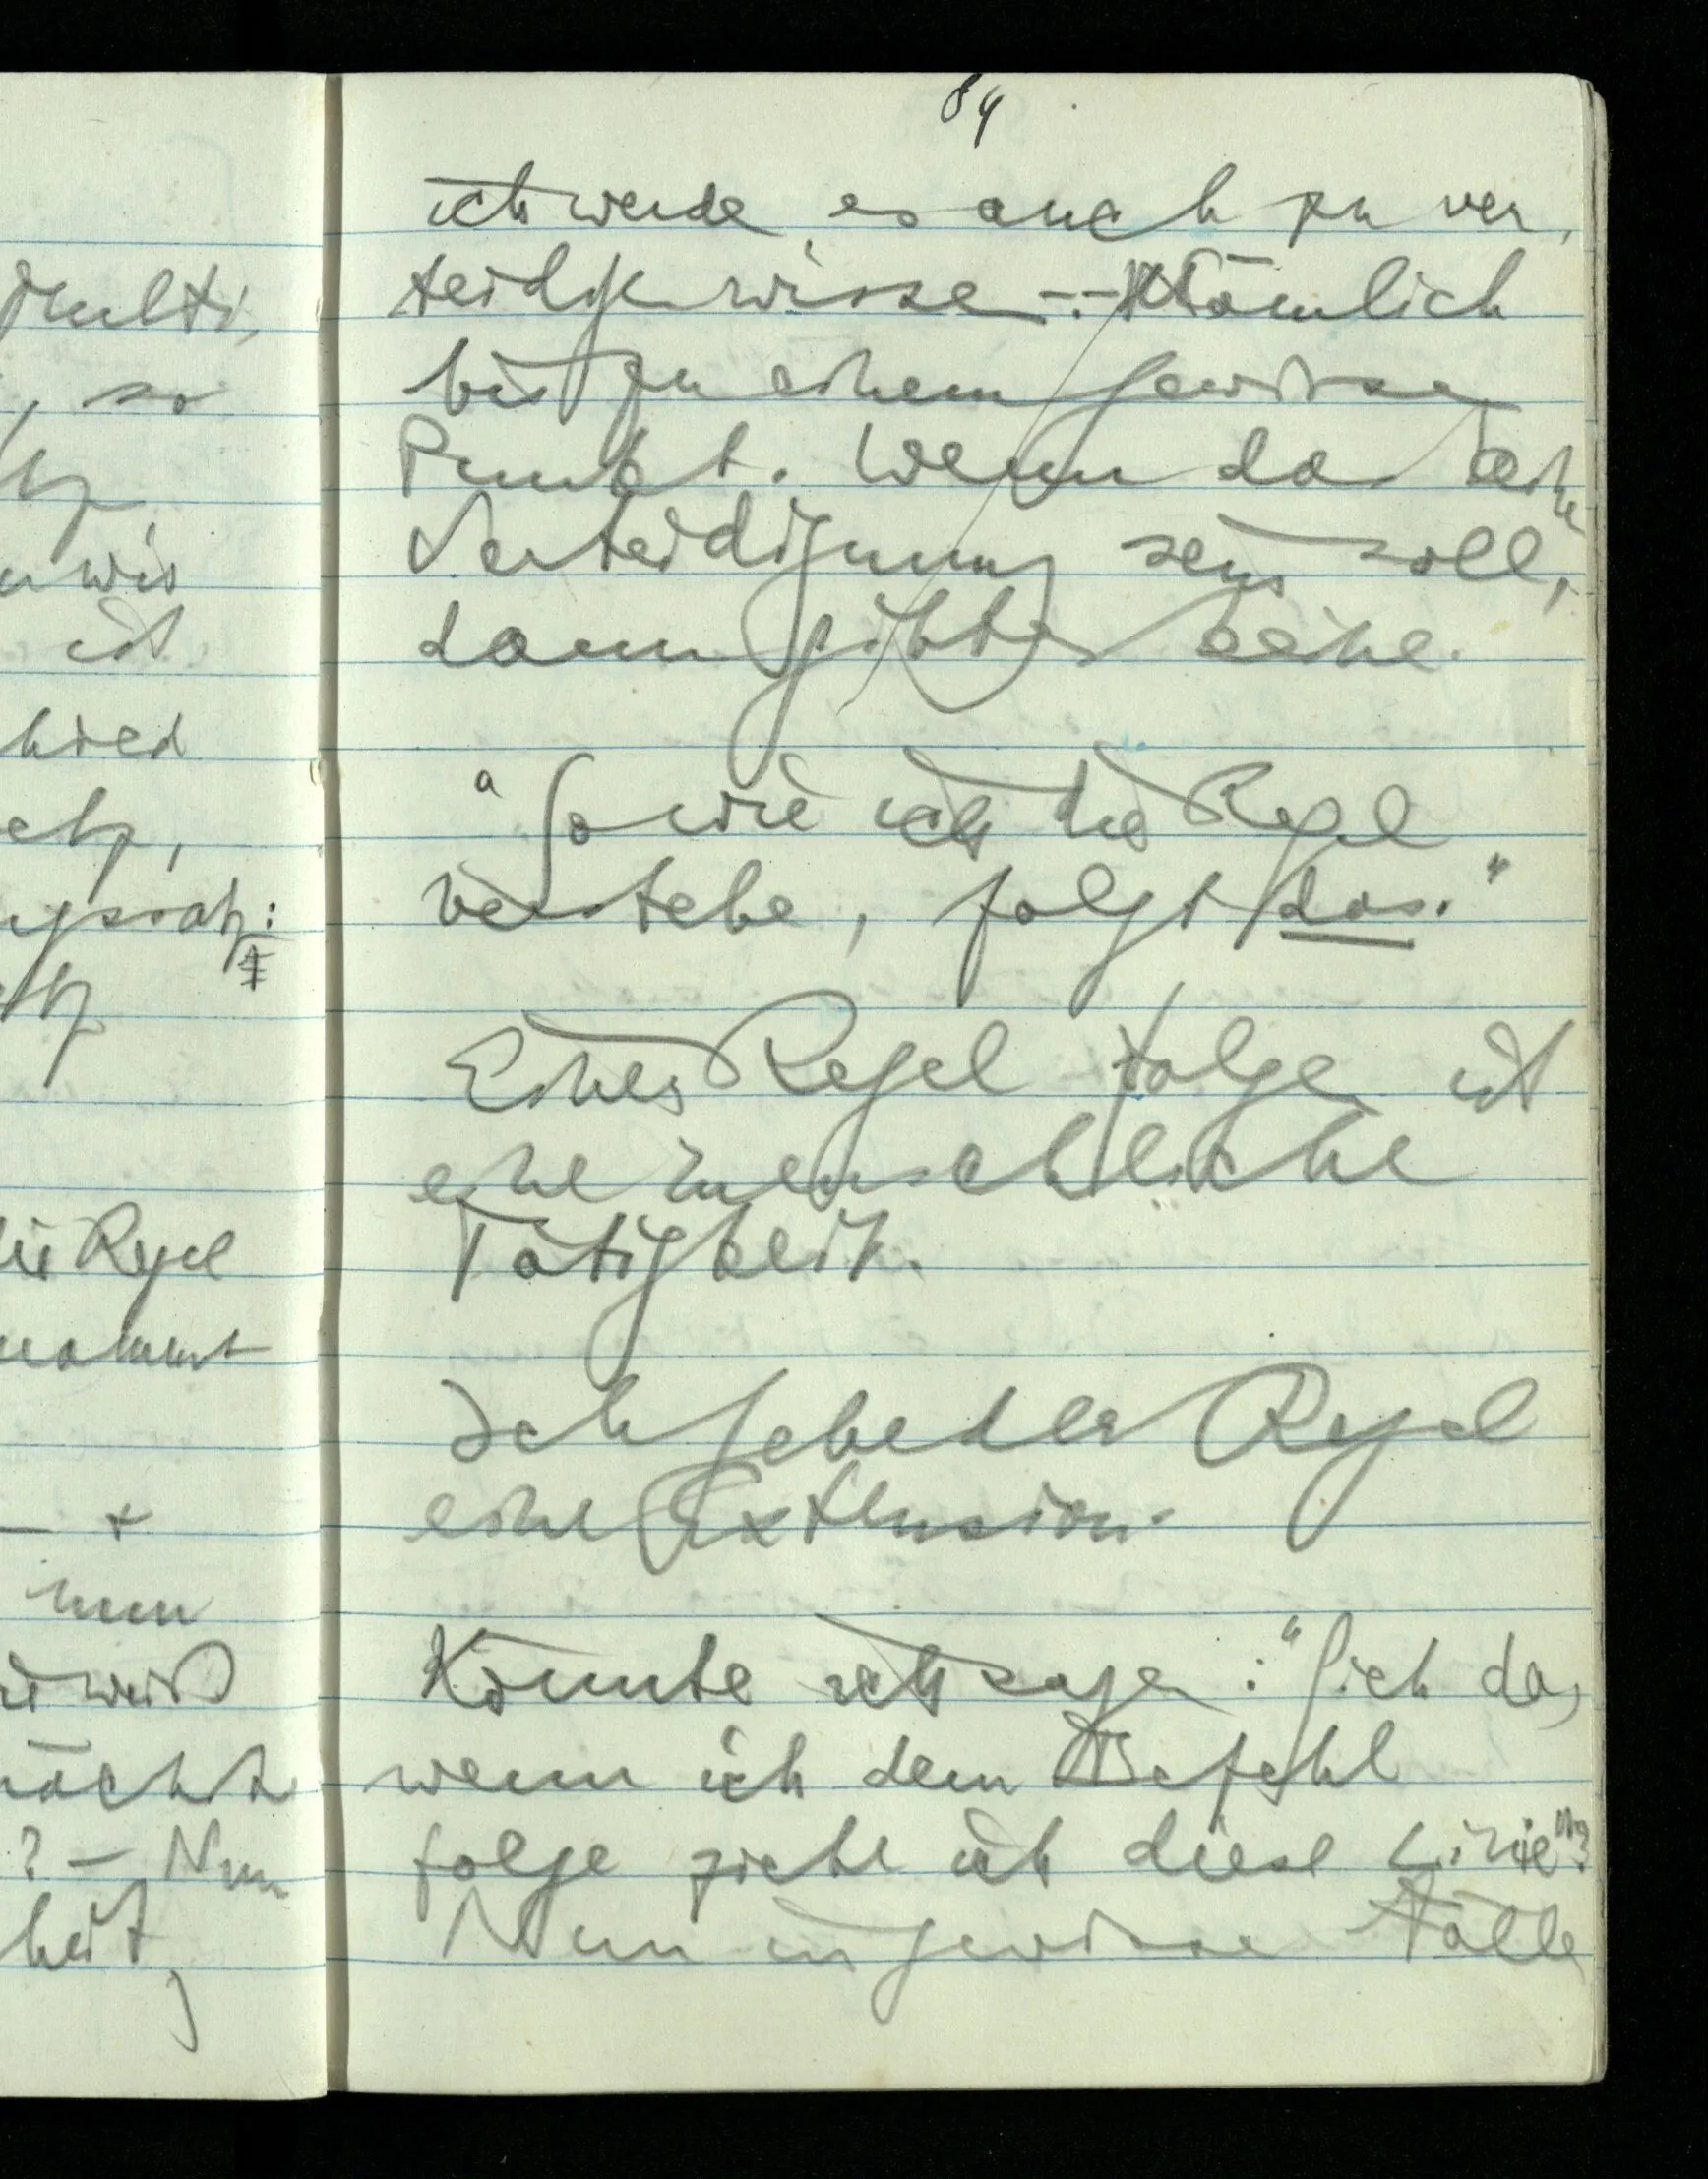 84
ich werde es auch zu ver,
teidigen wissen -- Nämlich
bis zu einem gewissen
Punkt. Wenn das keine
Verteidigung sein soll,
dann gibt es keine.
"So wie ich die Regel
verstehe, folgt das."
Einer Regel folgen ist
eine menschliche
Tätigkeit.
Ich gebe der Regel
eine Extension.
Könnte ich sagen: "Sieh da,
wenn ich dem Befehl
folge ziehe ich diese Linie"?
Nun in gewissen Fällen
Multi,
, so
wir
ist
hied
etz,
gssatz:
die Regel
nommt
nun
weiß
? – Nun
heit,